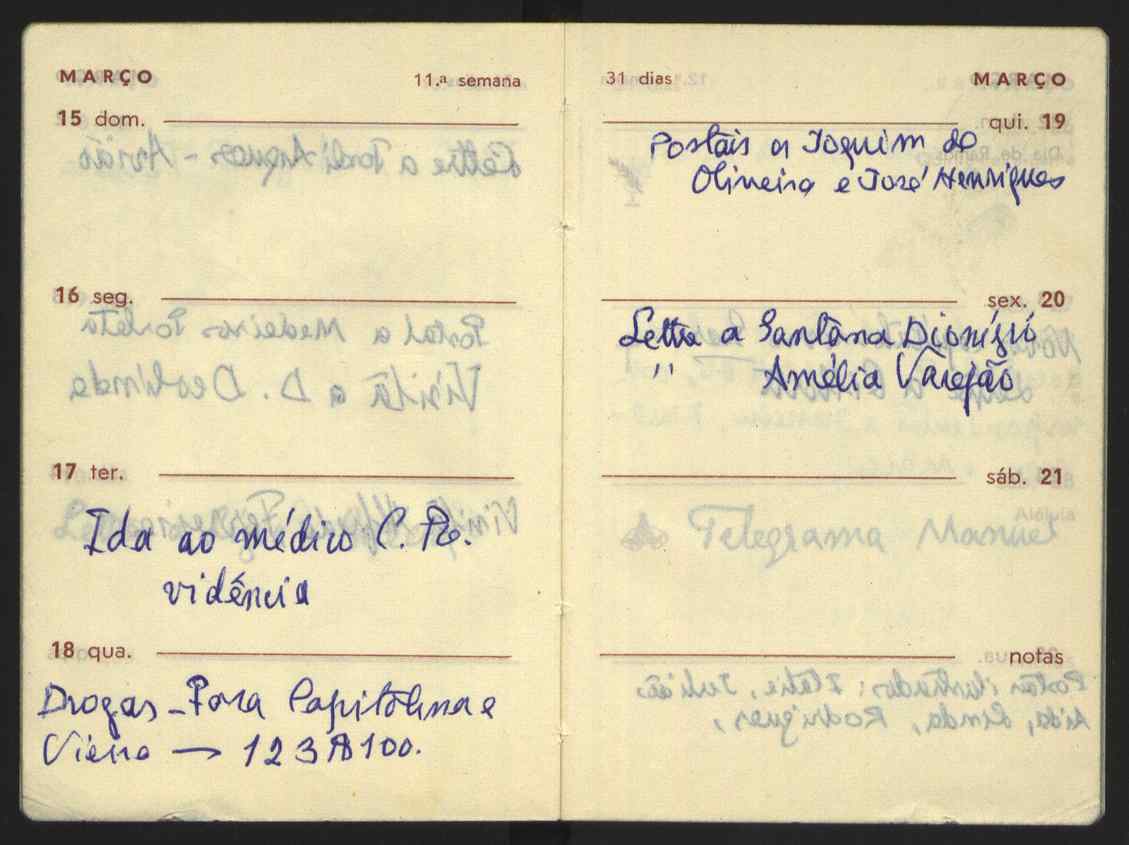 MARÇO 11.ª semana
15 dom.
16 seg.
17 ter.
Ida ao médico C. Pre.
vidência
18 qua.
Drogas - Para Capitolina e
Viena → 123$100.
31 dias MARÇO
qui. 19
Postais a Joquim de
Oliveira e José Henriques
sex. 20
Lettre a Santana Dionísio
" Amélia Varejão
sáb. 21
notas